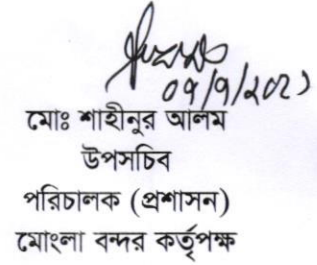 ০৭/৭/২০২১
মোঃ শাহীনুর আলম
উপসচিব
পরিচালক (প্রশাসন)
মোংলা বন্দর কর্তৃপক্ষ